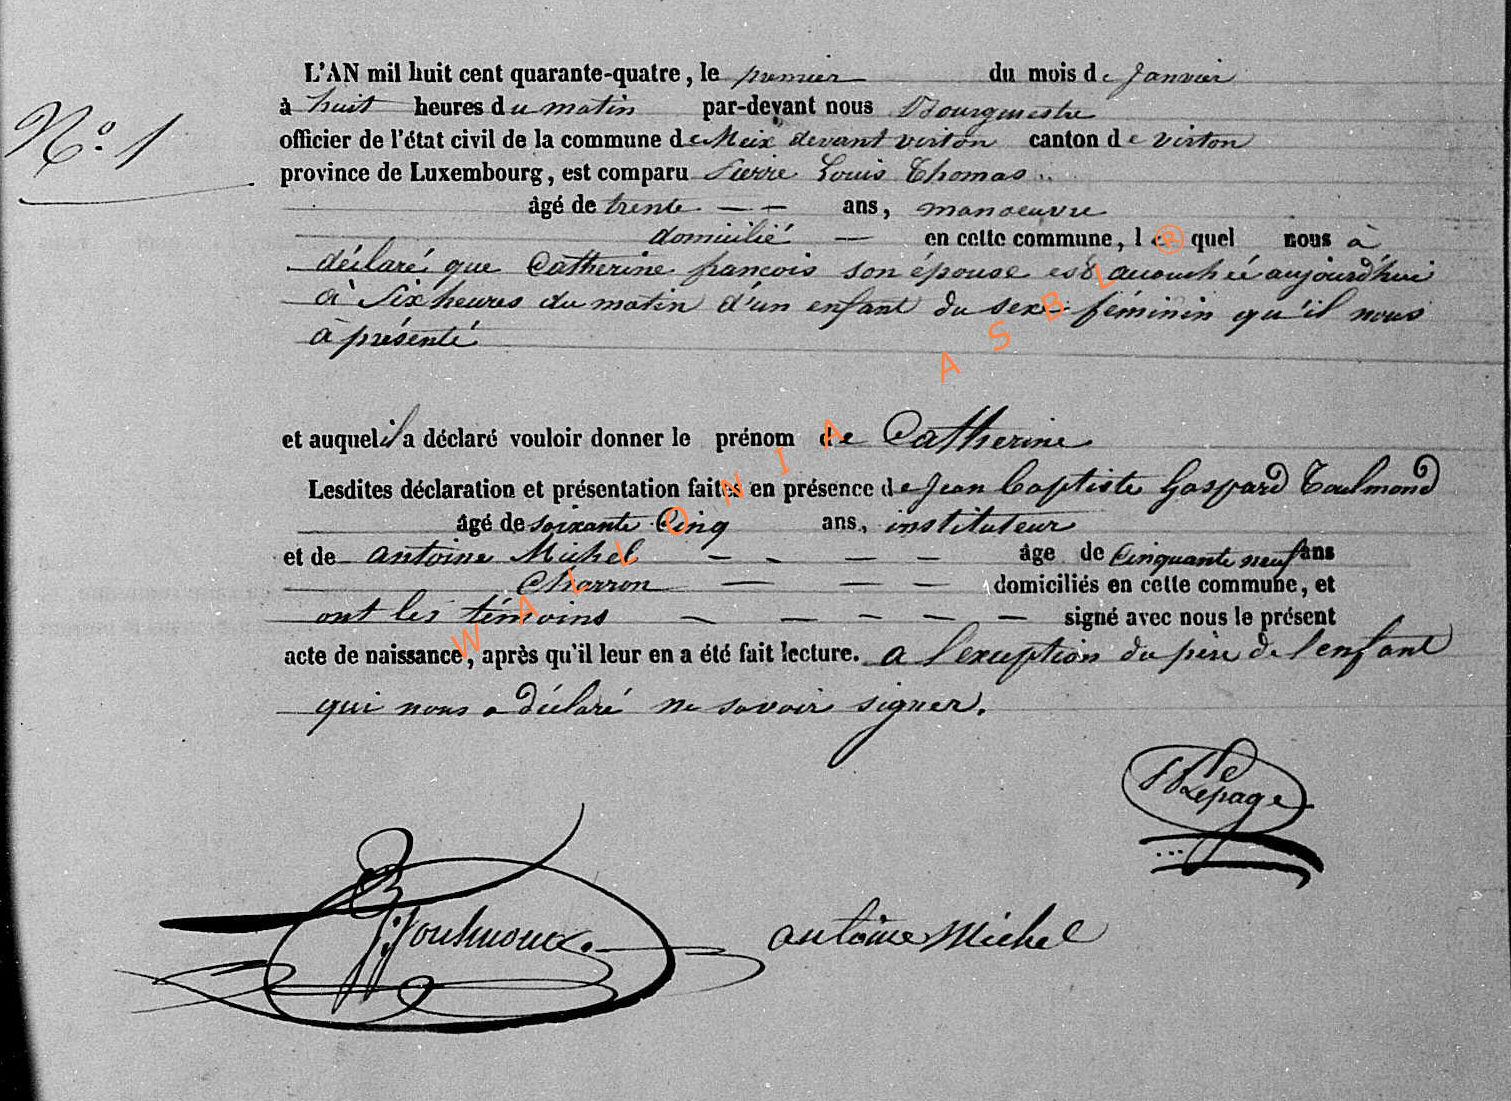 N.° 1
L'AN mil huit cent quarante-quatre, le premier du mois de Janvier
à huit heures du matin par-devant nous Bourgmestre
officier de l'état civil de la commune de Meix devant virton canton de virton
province de Luxembourg, est comparu Pierre Louis Thomas
âgé de trente ans, manoeuvre
domicilié en cette commune, lequel nous à
déclaré que Catherine francois son épouse est accouchéé aujourd'hui
à Six heures du matin d'un enfant du sexe féminin qu'il nous
à présenté
et auquel il a déclaré vouloir donner le prénom de Catherine
Lesdites déclaration et présentation faites en présence de Jean Baptiste Gaspard Toulmond
âgé de soixante Cinq ans, instituteur
et de antoine Michel âge de Cinquante neuf ans
Charron domiciliés en cette commune, et
ont les témoins signé avec nous le présent
acte de naissance, après qu'il leur en a été fait lecture. a l'exception du père de l'enfant
qui nous a déclaré ne savoir signer.
Lepage
Toulmond.
antoine Michel
WALLONIA ASBL ®